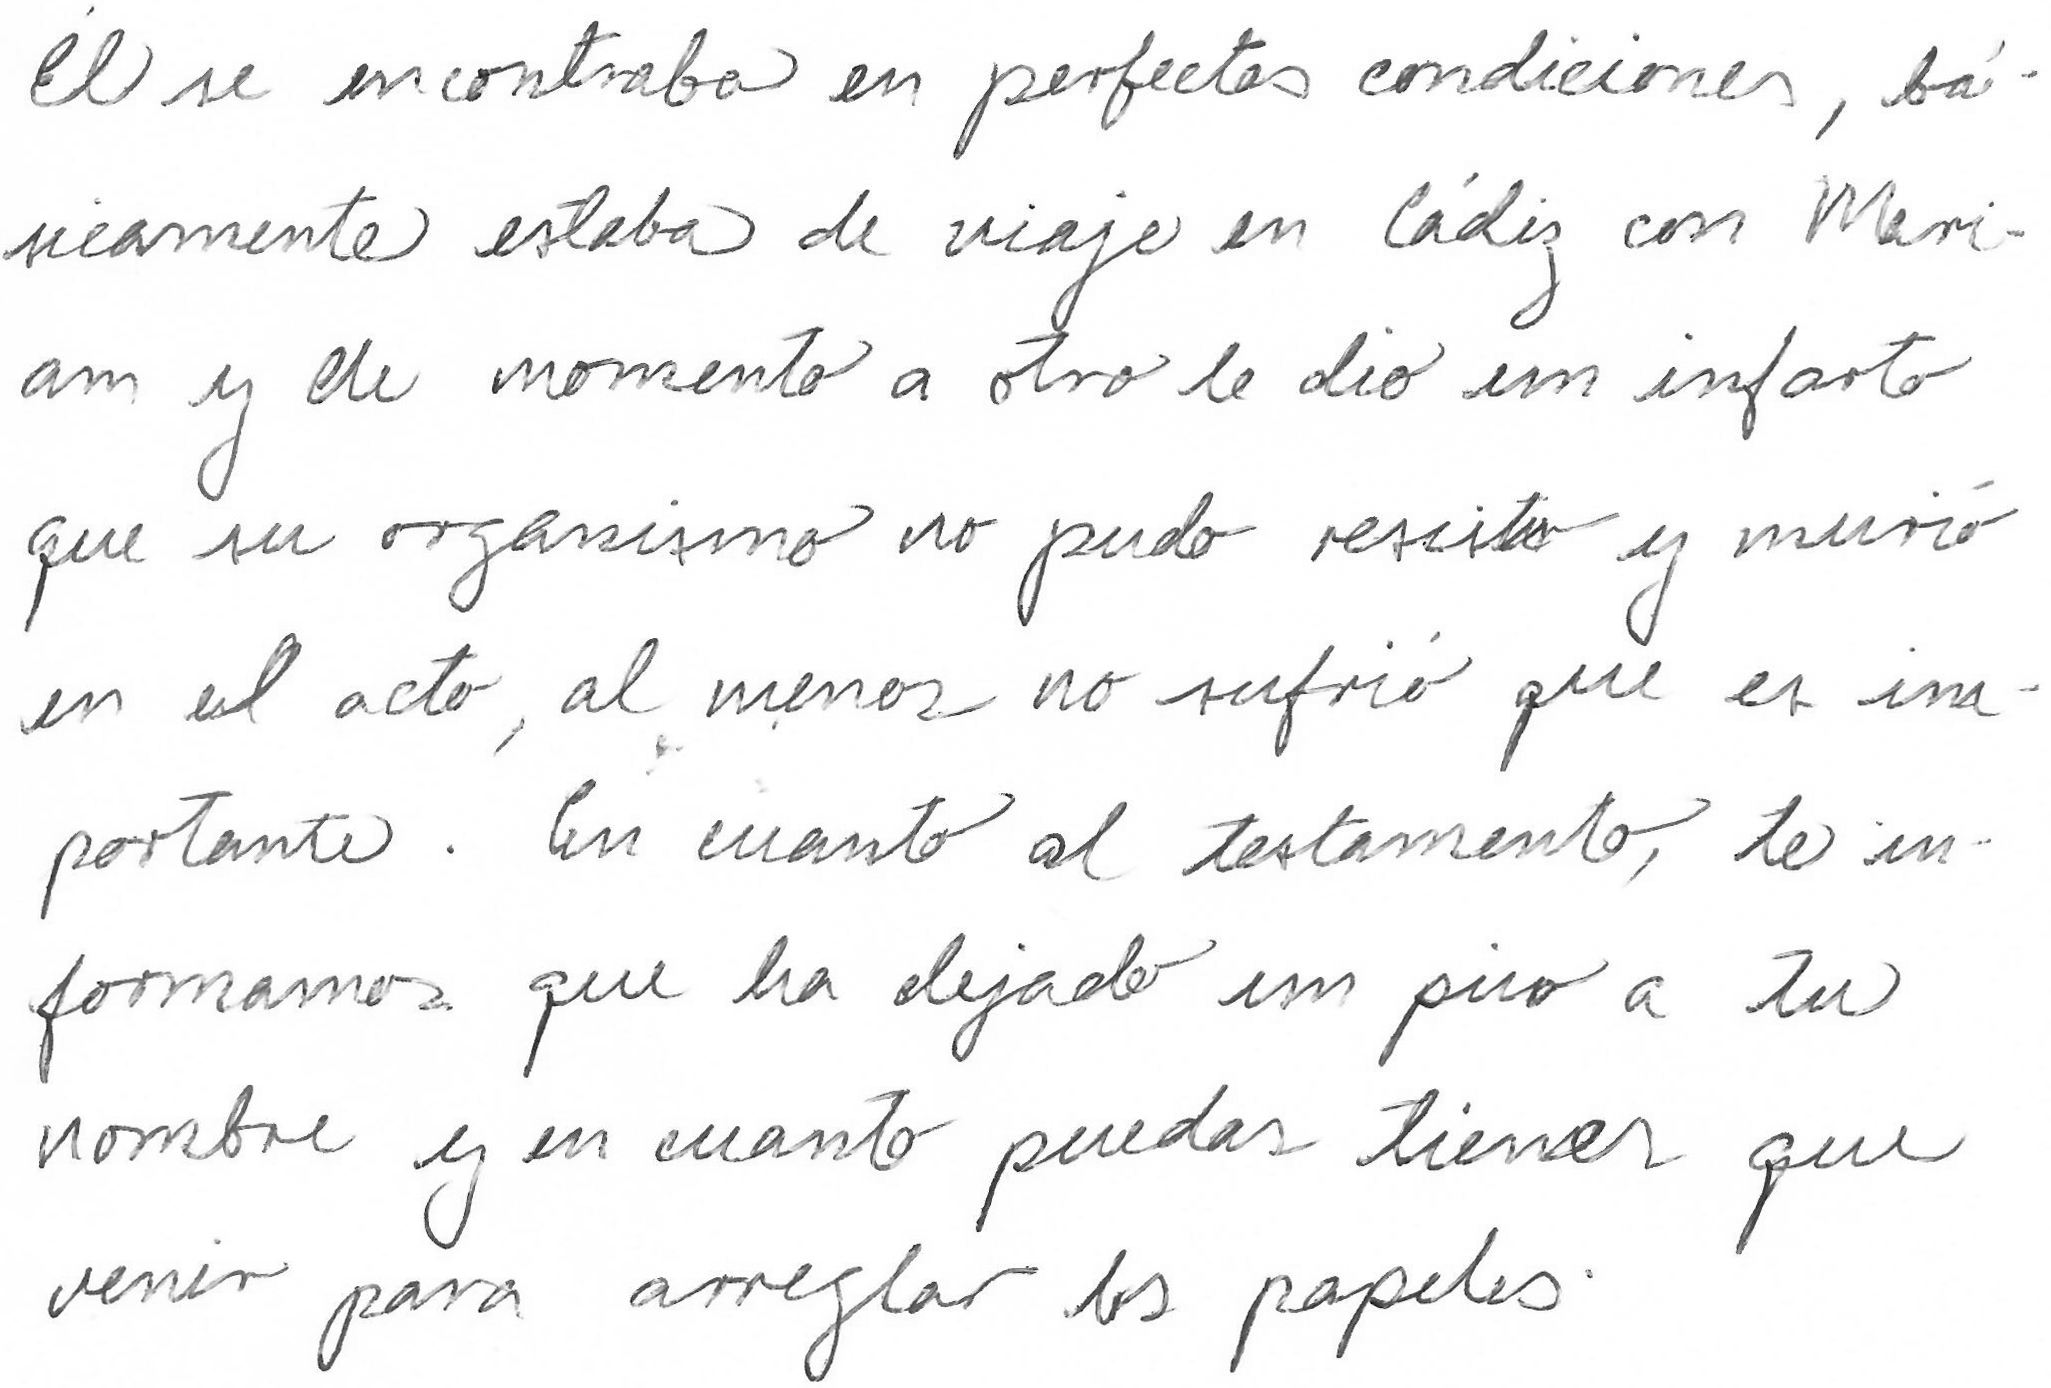 Él se encontraba en perfectas condiciones, bá-
sicamente estaba de viaje en Cádiz con Mari-
am y de momento a otro le dio un infarto
que su organismo no pudo resistir y murió
en el acto, al menos no sufrió que es im-
portante. En cuanto al testamento, te in-
formamos que ha dejado un piso a tu
nombre y en cuanto puedas tienes que
venir para arreglar los papeles.